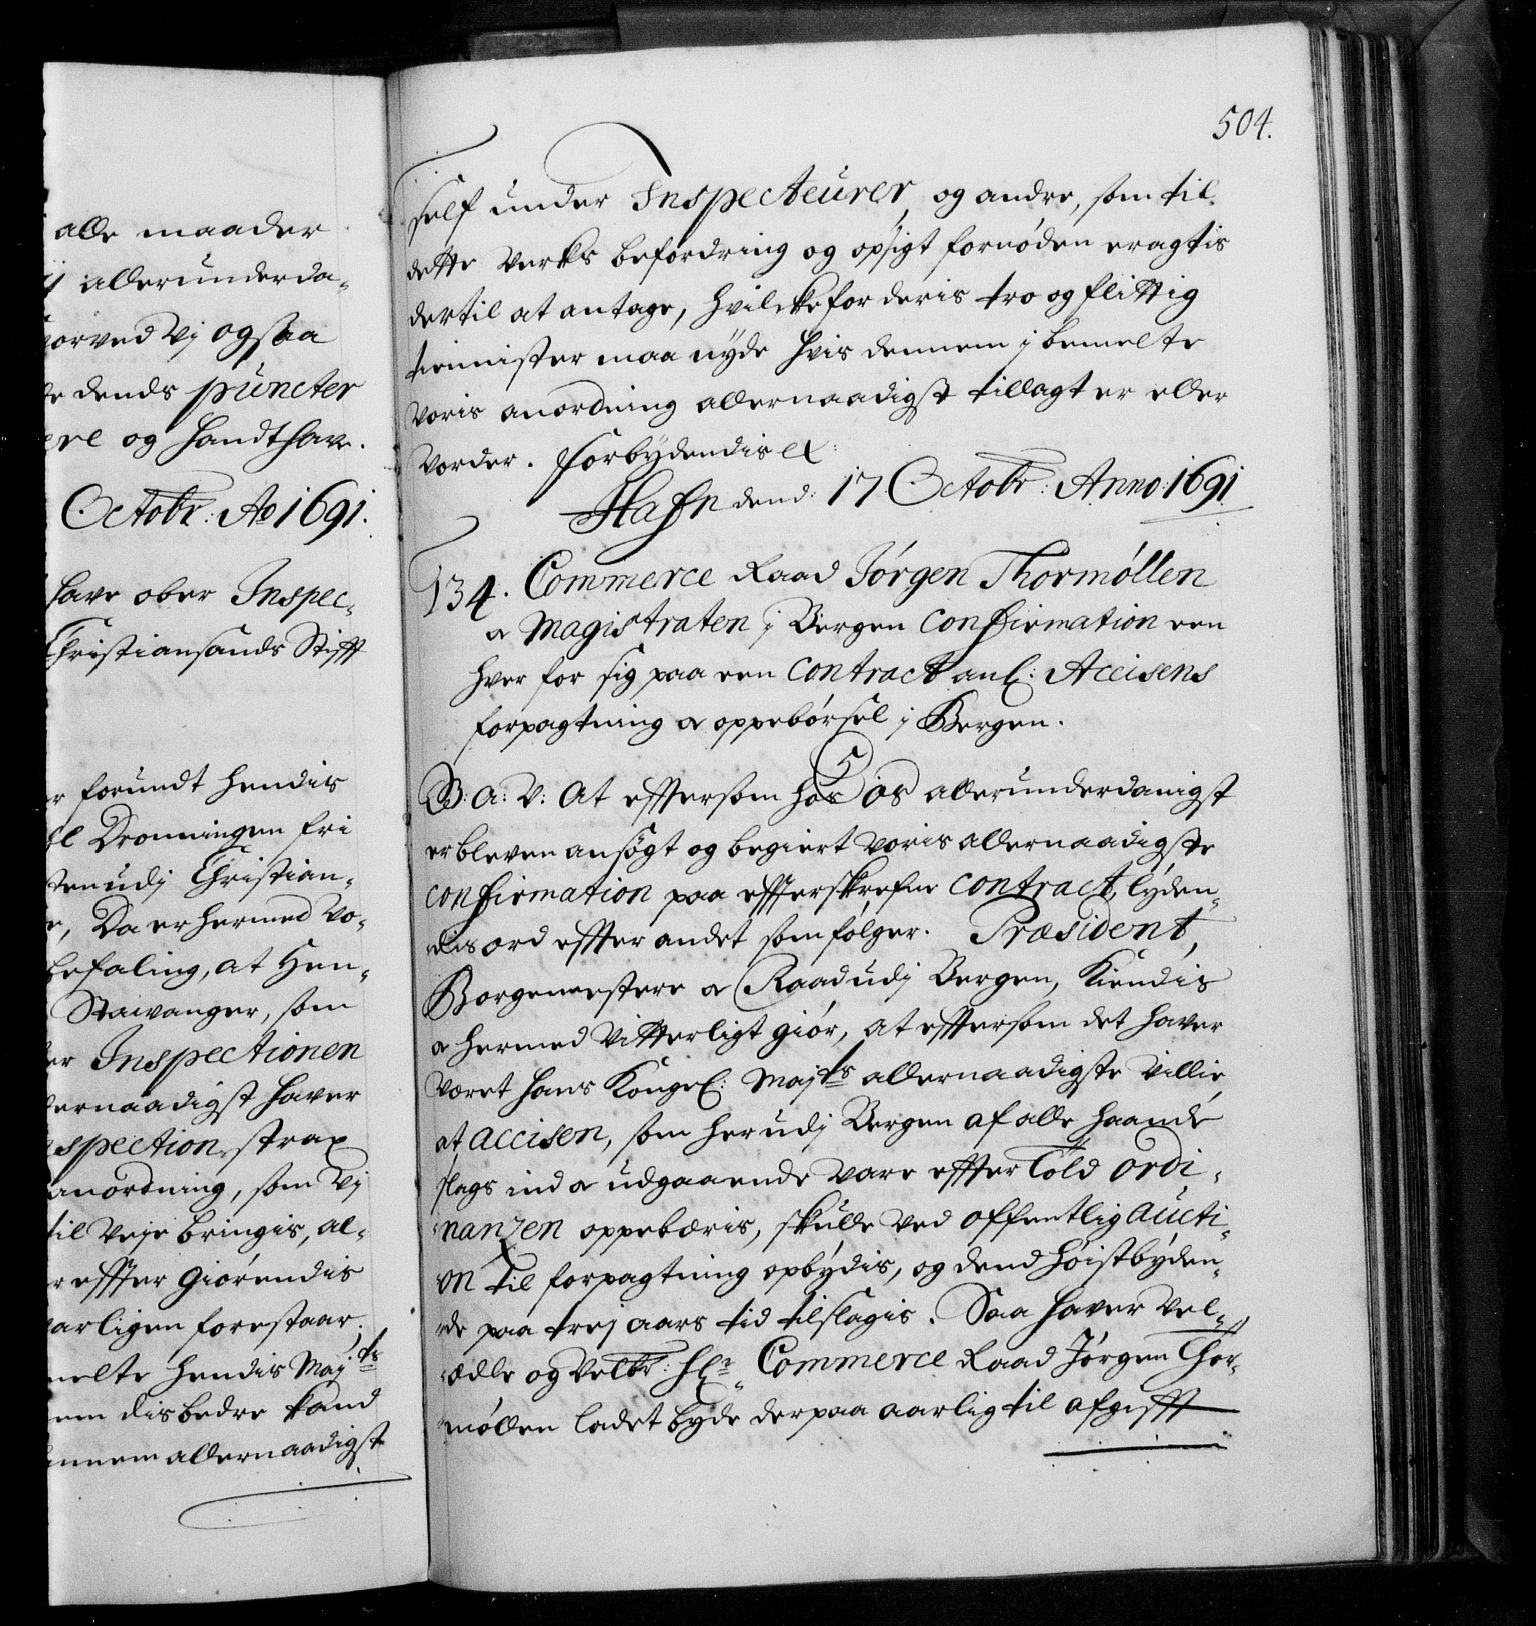 alle maader
allerunderda-
vorved Vj ogsaa
dends puncter
og handthave.
Octobr: Ao 1691.
have ober Inspec-
Christiansands Stifft
forundt hendis
Dronningen fri
udj Christian-
Da er hermed Vo-
befaling, at Hen-
Stawanger, som
Inspectionen
allernaadigst haver
spection, strax
anordning, som Vj
til Veje bringis, al-
effter giørendis
varligen forestaar.
melte hendis Maj:ts
dis bedre kand
dennem allernaadigst
504.
self under Inspecteurer, og andre, som til
dette Verks befordring og opsigt fornøden eragtis
dertil at antage, hvilcke for deris tro og flittig
tiennister maa nyde hvis dennem j bemelte
Voris anordning allernaadigst tillagt er eller
Vorder. Forbydendis &:
Hafn dend: 17 Octobr: Anno: 1691
134. Commerce Raad Jörgen Thormøllen
& Magistraten j Bergen Confirmation een
hver for sig paa een Contract anl: Accisens
forpagtning & oppebørsel j Bergen.
C5
B: A: V: At effterson hos os allerunderdanigst
er bleven ansøgt og begiert Voris allernaadigste
Confirmation paa effterskrefne Contract, lyden-
dis ord effter andet som følger. Præsident,
Borgemestere & Raad udj Bergen, Kiendis
& hermed Vitterligt giør, at effterson det haver
Været hans Kongel: Maj:ts allernaadigste Villie,
at Accisen, som her udj Bergen af alle haande
slags ind & udgaaende Vare effter Told ordi-
nanzen oppebæris, skulle Ved offentlig Aucti-
on til forpagtning opbydis, og dend høistbyden-
de paa trej aars tid tilslagis. Saa haver Vel-
ædle og Velbr: Hr: Commerce Raad Jörgen Thor-
møllen ladet byde derpaa aarlig til afgifft